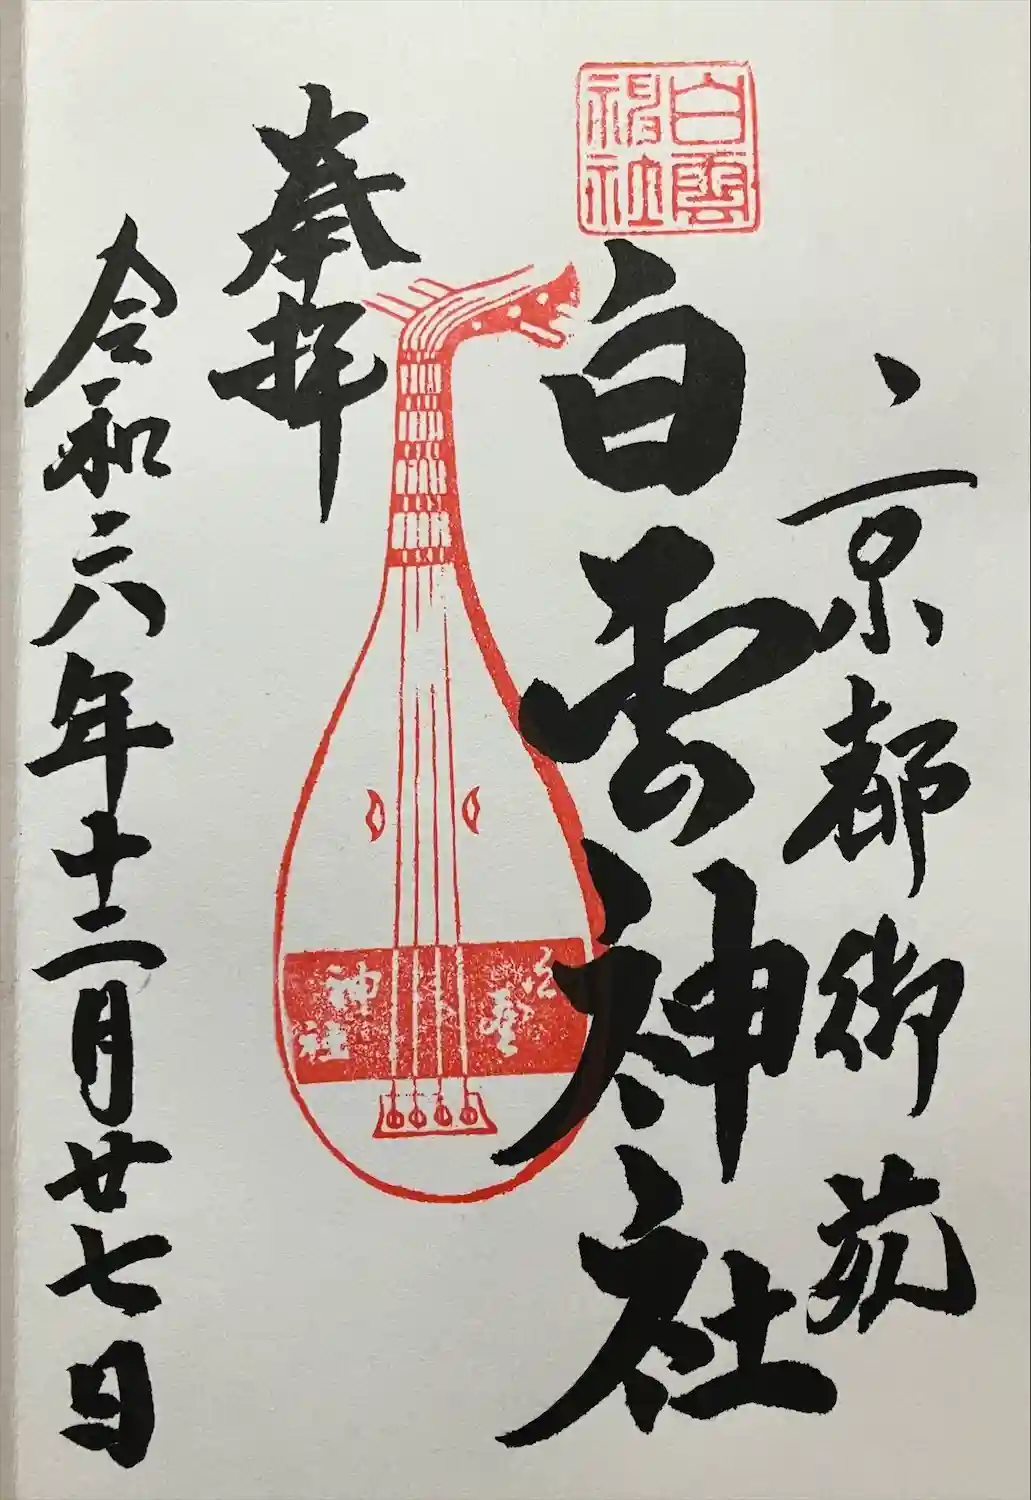 京都御苑
白雲神社
白雲
神社
奉拝
神社
令和六年十二月廿七日